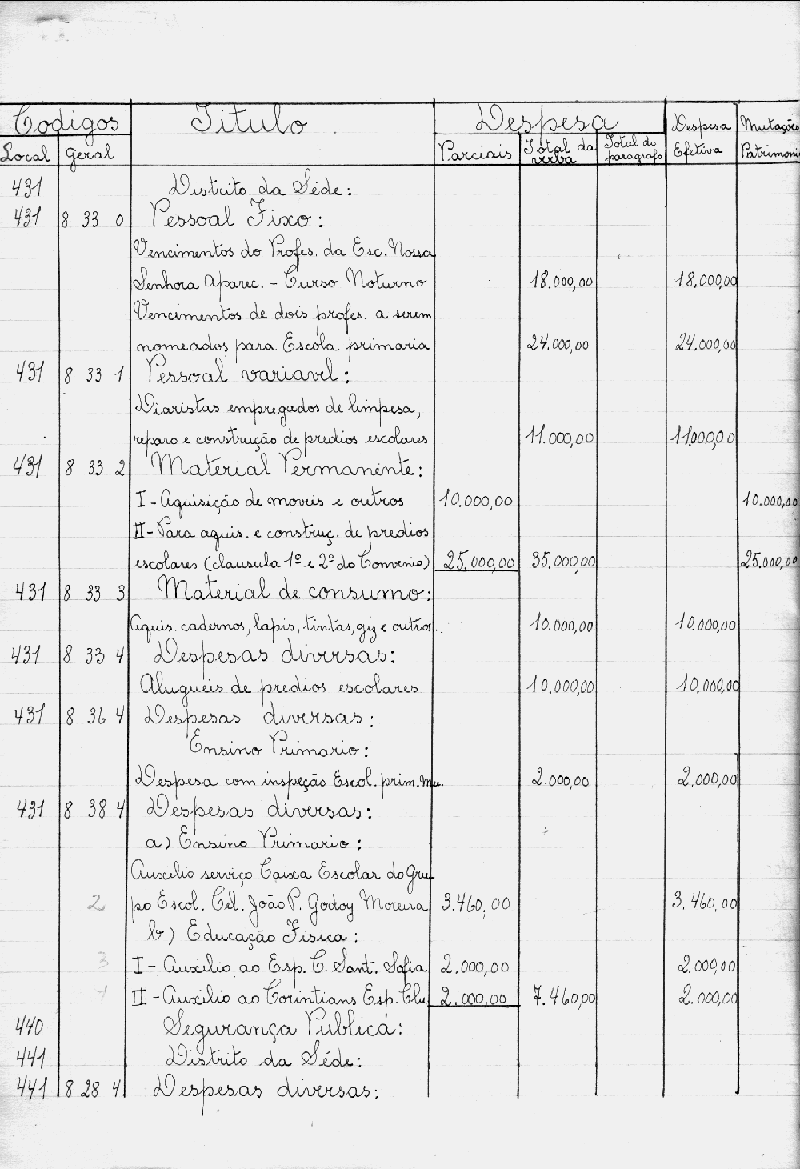 Codigos Titulo Despesa Despesa Efetiva Mutações Patrimoni
Local Geral Parciais Total da verba Total do paragrafo
431 Distrito da Séde:
431 8 33 0 Pessoal Fixo:
Vencimentos do Profes. da Esc. Nossa
Senhora Aparec. - Curso Noturno 18.000,00 18.000,00
Vencimentos de dois profes. a serem
nomeados para Escola primaria 24.000,00 24.000,00
431 8 33 1 Pessoal variavil:
Diaristas empregados de limpesa,
reparo e construção de predios escolares 11.000,00 11000,00
431 8 33 2 Material Permanente:
I - Aquisição de moveis e outros 10.000,00 10.000,00
II - Para aquis. e construç. de predios
escolares (clausula 1º e 2º do Convenio) 25.000,00 35.000,00 25.000,00
431 8 33 3 Material de consumo:
Aquis. cadernos, lapis, tintas, giz e outros.. 10.000,00 10.000,00
431 8 33 4 Despesas diversas:
Alugueis de predios escolares 10.000,00 10.000,00
431 8 36 4 Despesas diversas:
Ensino Primario:
Despesa com inspeção Escol. prim. Mu. 2.000,00 2.000,00
431 8 38 4 Despesas diversas:
a) Ensino Primario:
Auxilio serviço Caixa Escolar do Gru-
2 po Escol. Cél. João P. Godoy Moreira 3.460,00 3.460,00
b) Educação Fisica:
3 I - Auxilio ao Esp. C. Sant. Sofia 2.000,00 2.000,00
4 II - Auxilio ao Corintians Esp. Clu 2.000,00 7.460,00 2.000,00
440 Segurança Publica:
441 Distrito da Séde:
441 8 28 4 Despesas diversas: